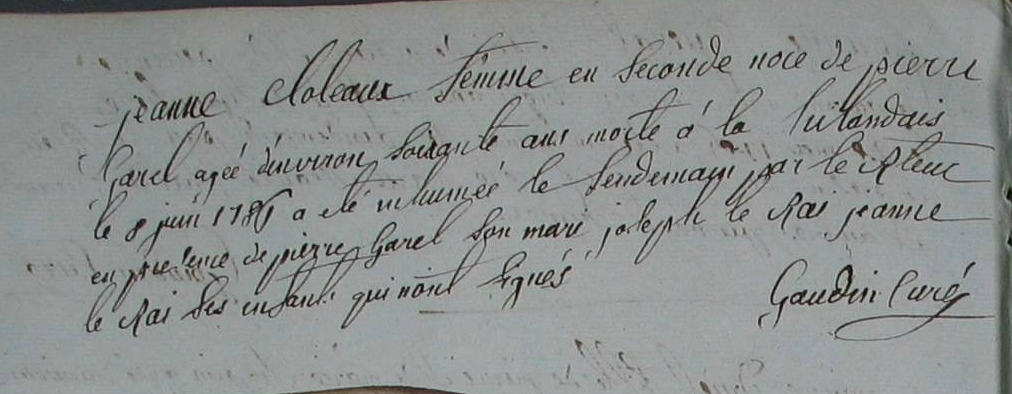 jeanne Cloleaux femme en seconde noce de pierre
Garel agée d'environ soixante ans morte á la
le 8 juin 1786 a eté inhumée le lendemain par le Rteur
en presence de pierre Garel son mari joseph le Rai jeanne
le Rai ses enfants qui n'ont signés
Gaudin Curé